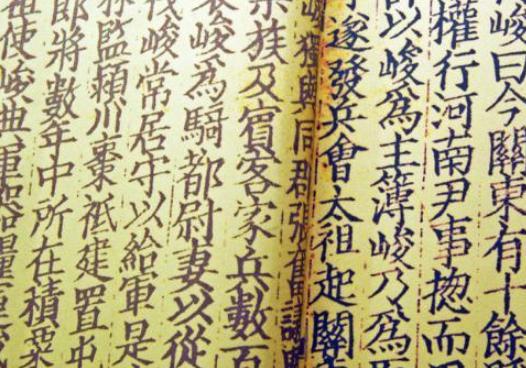 峻曰今關東有十餘
權行河南尹事惣而
以峻為主簿峻乃為
遂發兵會太祖起關
峻獨與同郡張奮議
族及賓客家兵數百
峻為騎都尉妻以從
伐峻常居守以給軍是
林監潁川棗祗建置屯
郎將數年中所在積粟
祖使峻典軍器糧運